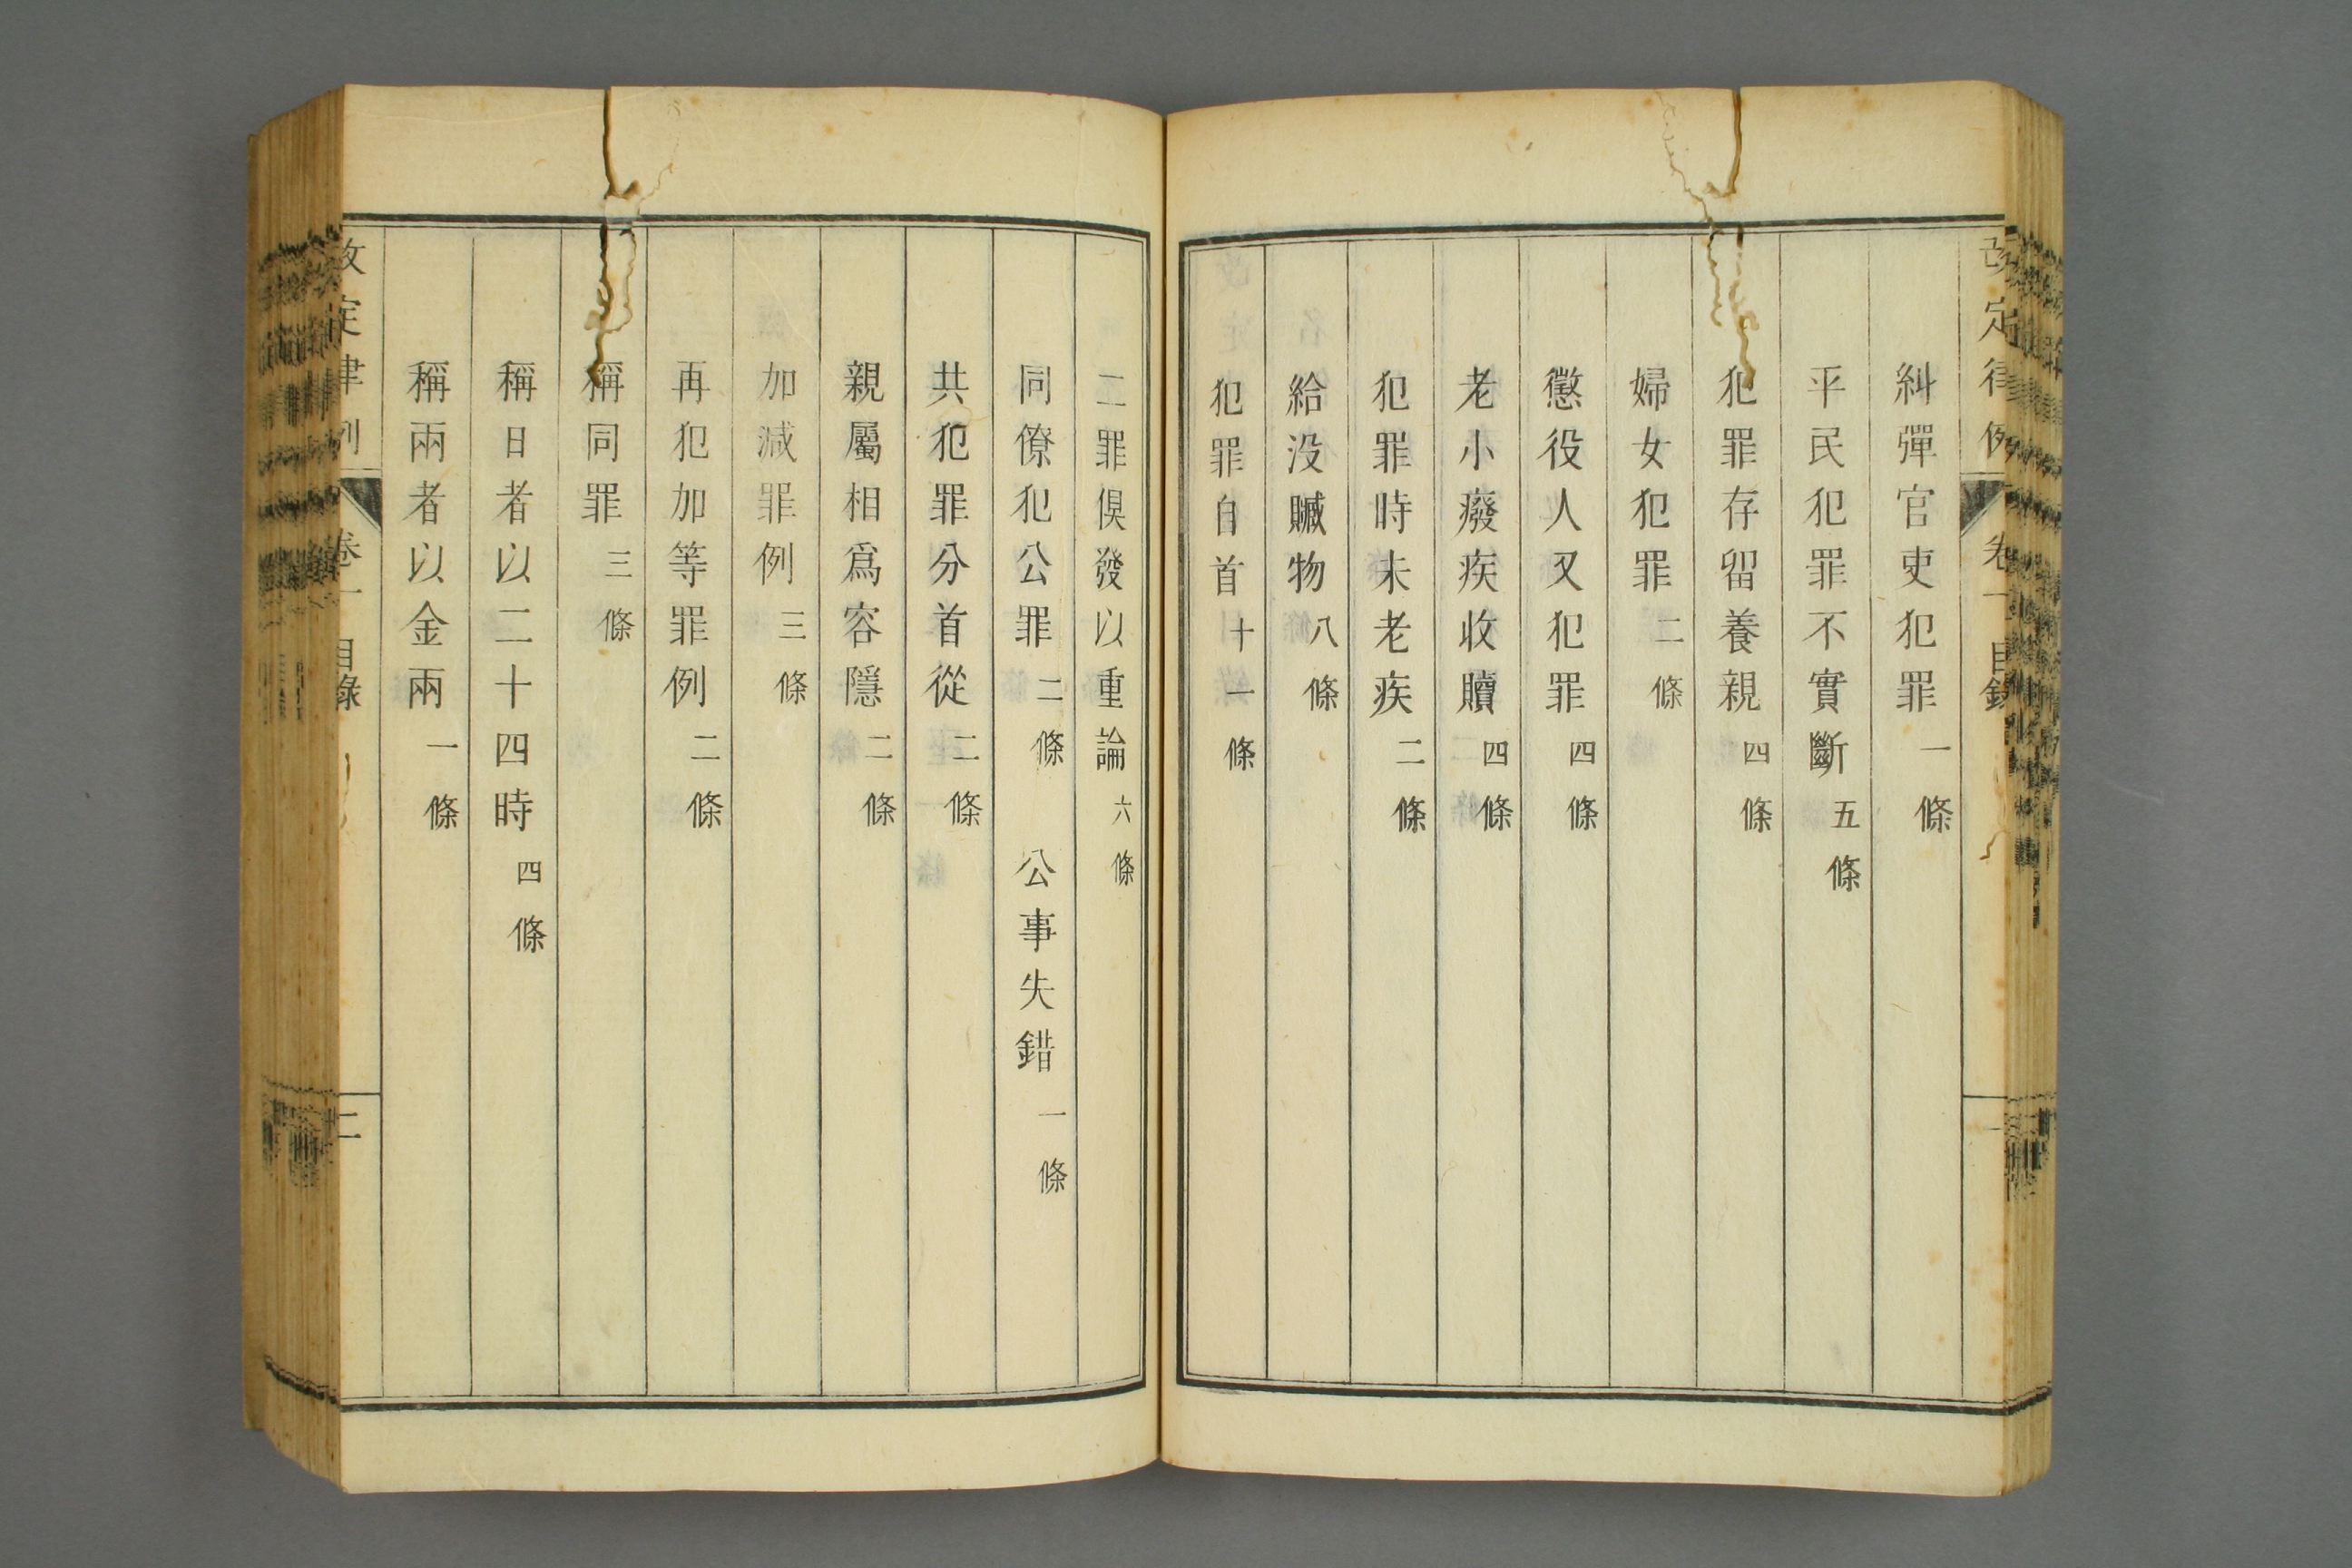 改定律例 卷一 目錄
糾彈官吏犯罪 一條
平民犯罪不實斷 五條
犯罪存留養親 四條
婦女犯罪 二條
懲役人又犯罪 四條
老小癈疾收贖 四條
犯罪時未老疾 二條
給没贓物 八條
犯罪自首 十一條
二罪俱發以重論 六條
同僚犯公罪 二條 公事失錯 一條
共犯罪分首從 二條
親屬相爲容隱 二條
加減罪例 三條
再犯加等罪例 二條
稱同罪 三條
稱日者以二十四時 四條
稱兩者以金兩 一條
改定律例 卷一 目錄 二